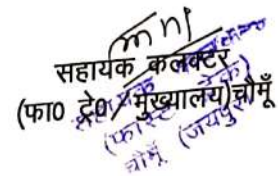 सहायक कलक्टर
(फा० ट्रे०/मुख्यालय)चौमूँ
(फास्ट ट्रेक)
चौमूँ (जयपुर)